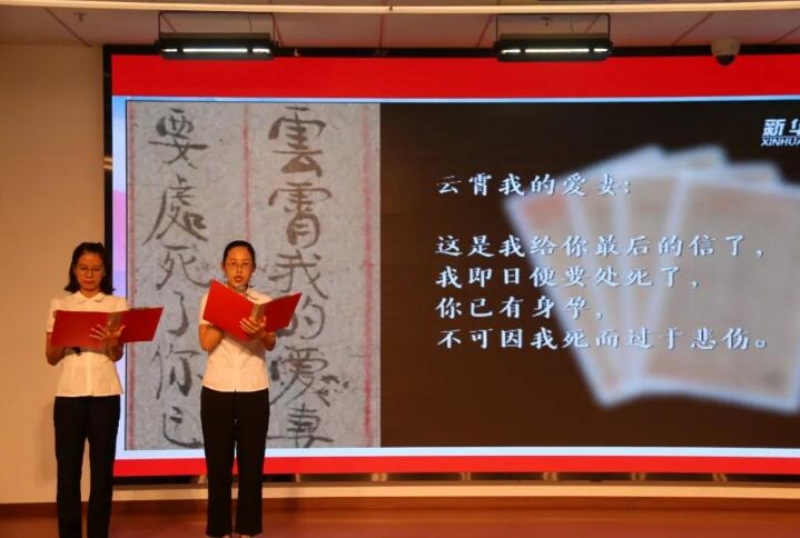 雲霄我的愛妻
要處死了你已
新华
XINHUA
云霄我的爱妻：
这是我给你最后的信了，
我即日便要处死了，
你已有身孕，
不可因我死而过于悲伤。